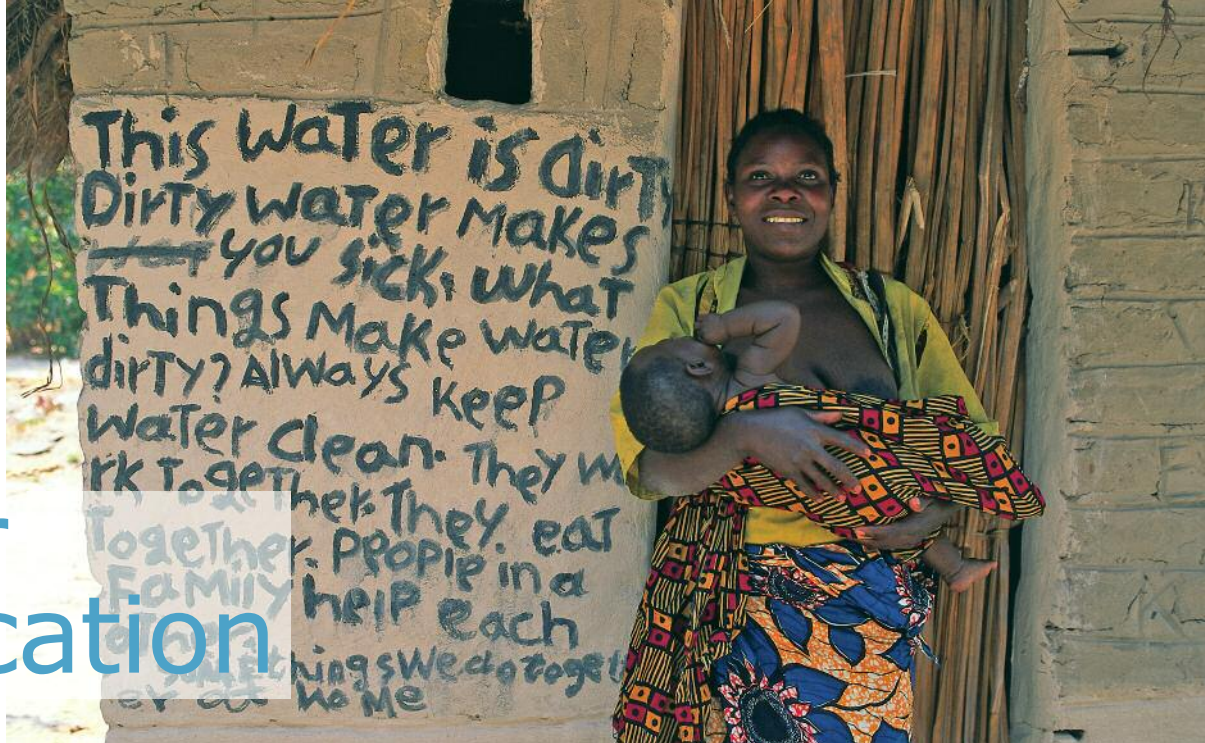 This Water is dirTy
DirTy WaTer Makes
you sick, What
Things Make WaTer
dirTy? AlWays keep
WaTer Clean. They W
rk TogeTher. They. eaT
TogeTher. People in a
Family help each
things We do toget
er at home
cation